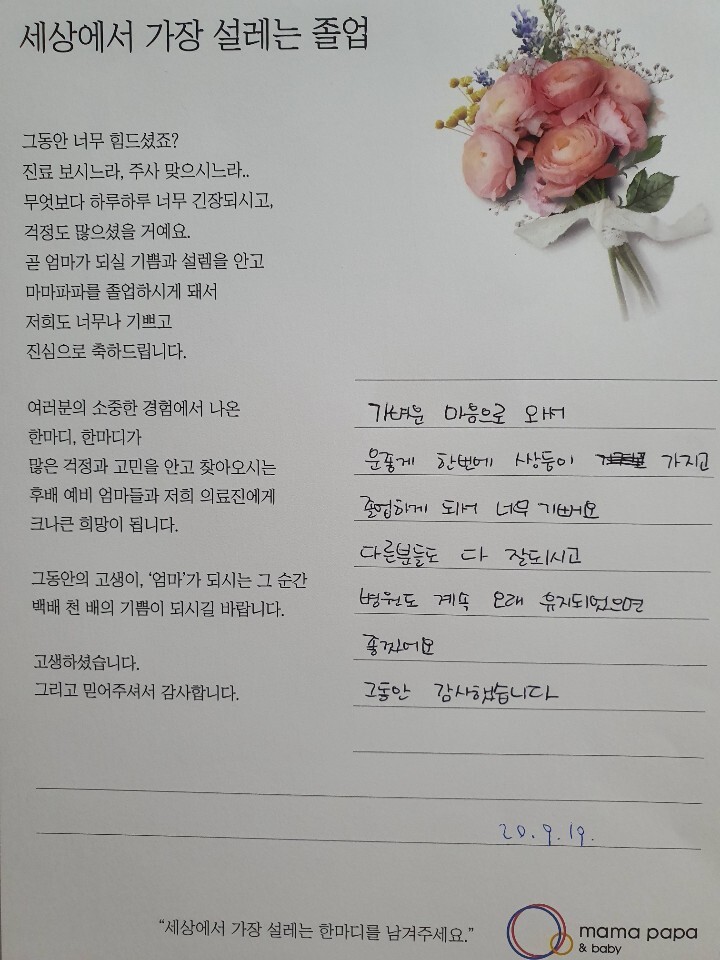 세상에서 가장 설레는 졸업
그동안 너무 힘드셨죠?
진료 보시느라, 주사 맞으시느라..
무엇보다 하루하루 너무 긴장되시고,
걱정도 많으셨을 거예요.
곧 엄마가 되실 기쁨과 설렘을 안고
마마파파를 졸업하시게 돼서
저희도 너무나 기쁘고
진심으로 축하드립니다.
여러분의 소중한 경험에서 나온
한마디, 한마디가
많은 걱정과 고민을 안고 찾아오시는
후배 예비 엄마들과 저희 의료진에게
크나큰 희망이 됩니다.
그동안의 고생이, ‘엄마’가 되시는 그 순간
백배 천 배의 기쁨이 되시길 바랍니다.
고생하셨습니다.
그리고 믿어주셔서 감사합니다.
가벼운 마음으로 와서
운좋게 한번에 쌍둥이 가지고
졸업하게 되서 너무 기뻐요
다른분들도 다 잘되시고
병원도 계속 오래 유지되었으면
좋겠어요
그동안 감사했습니다
20.9.19.
“세상에서 가장 설레는 한마디를 남겨주세요.”
mama papa
& baby